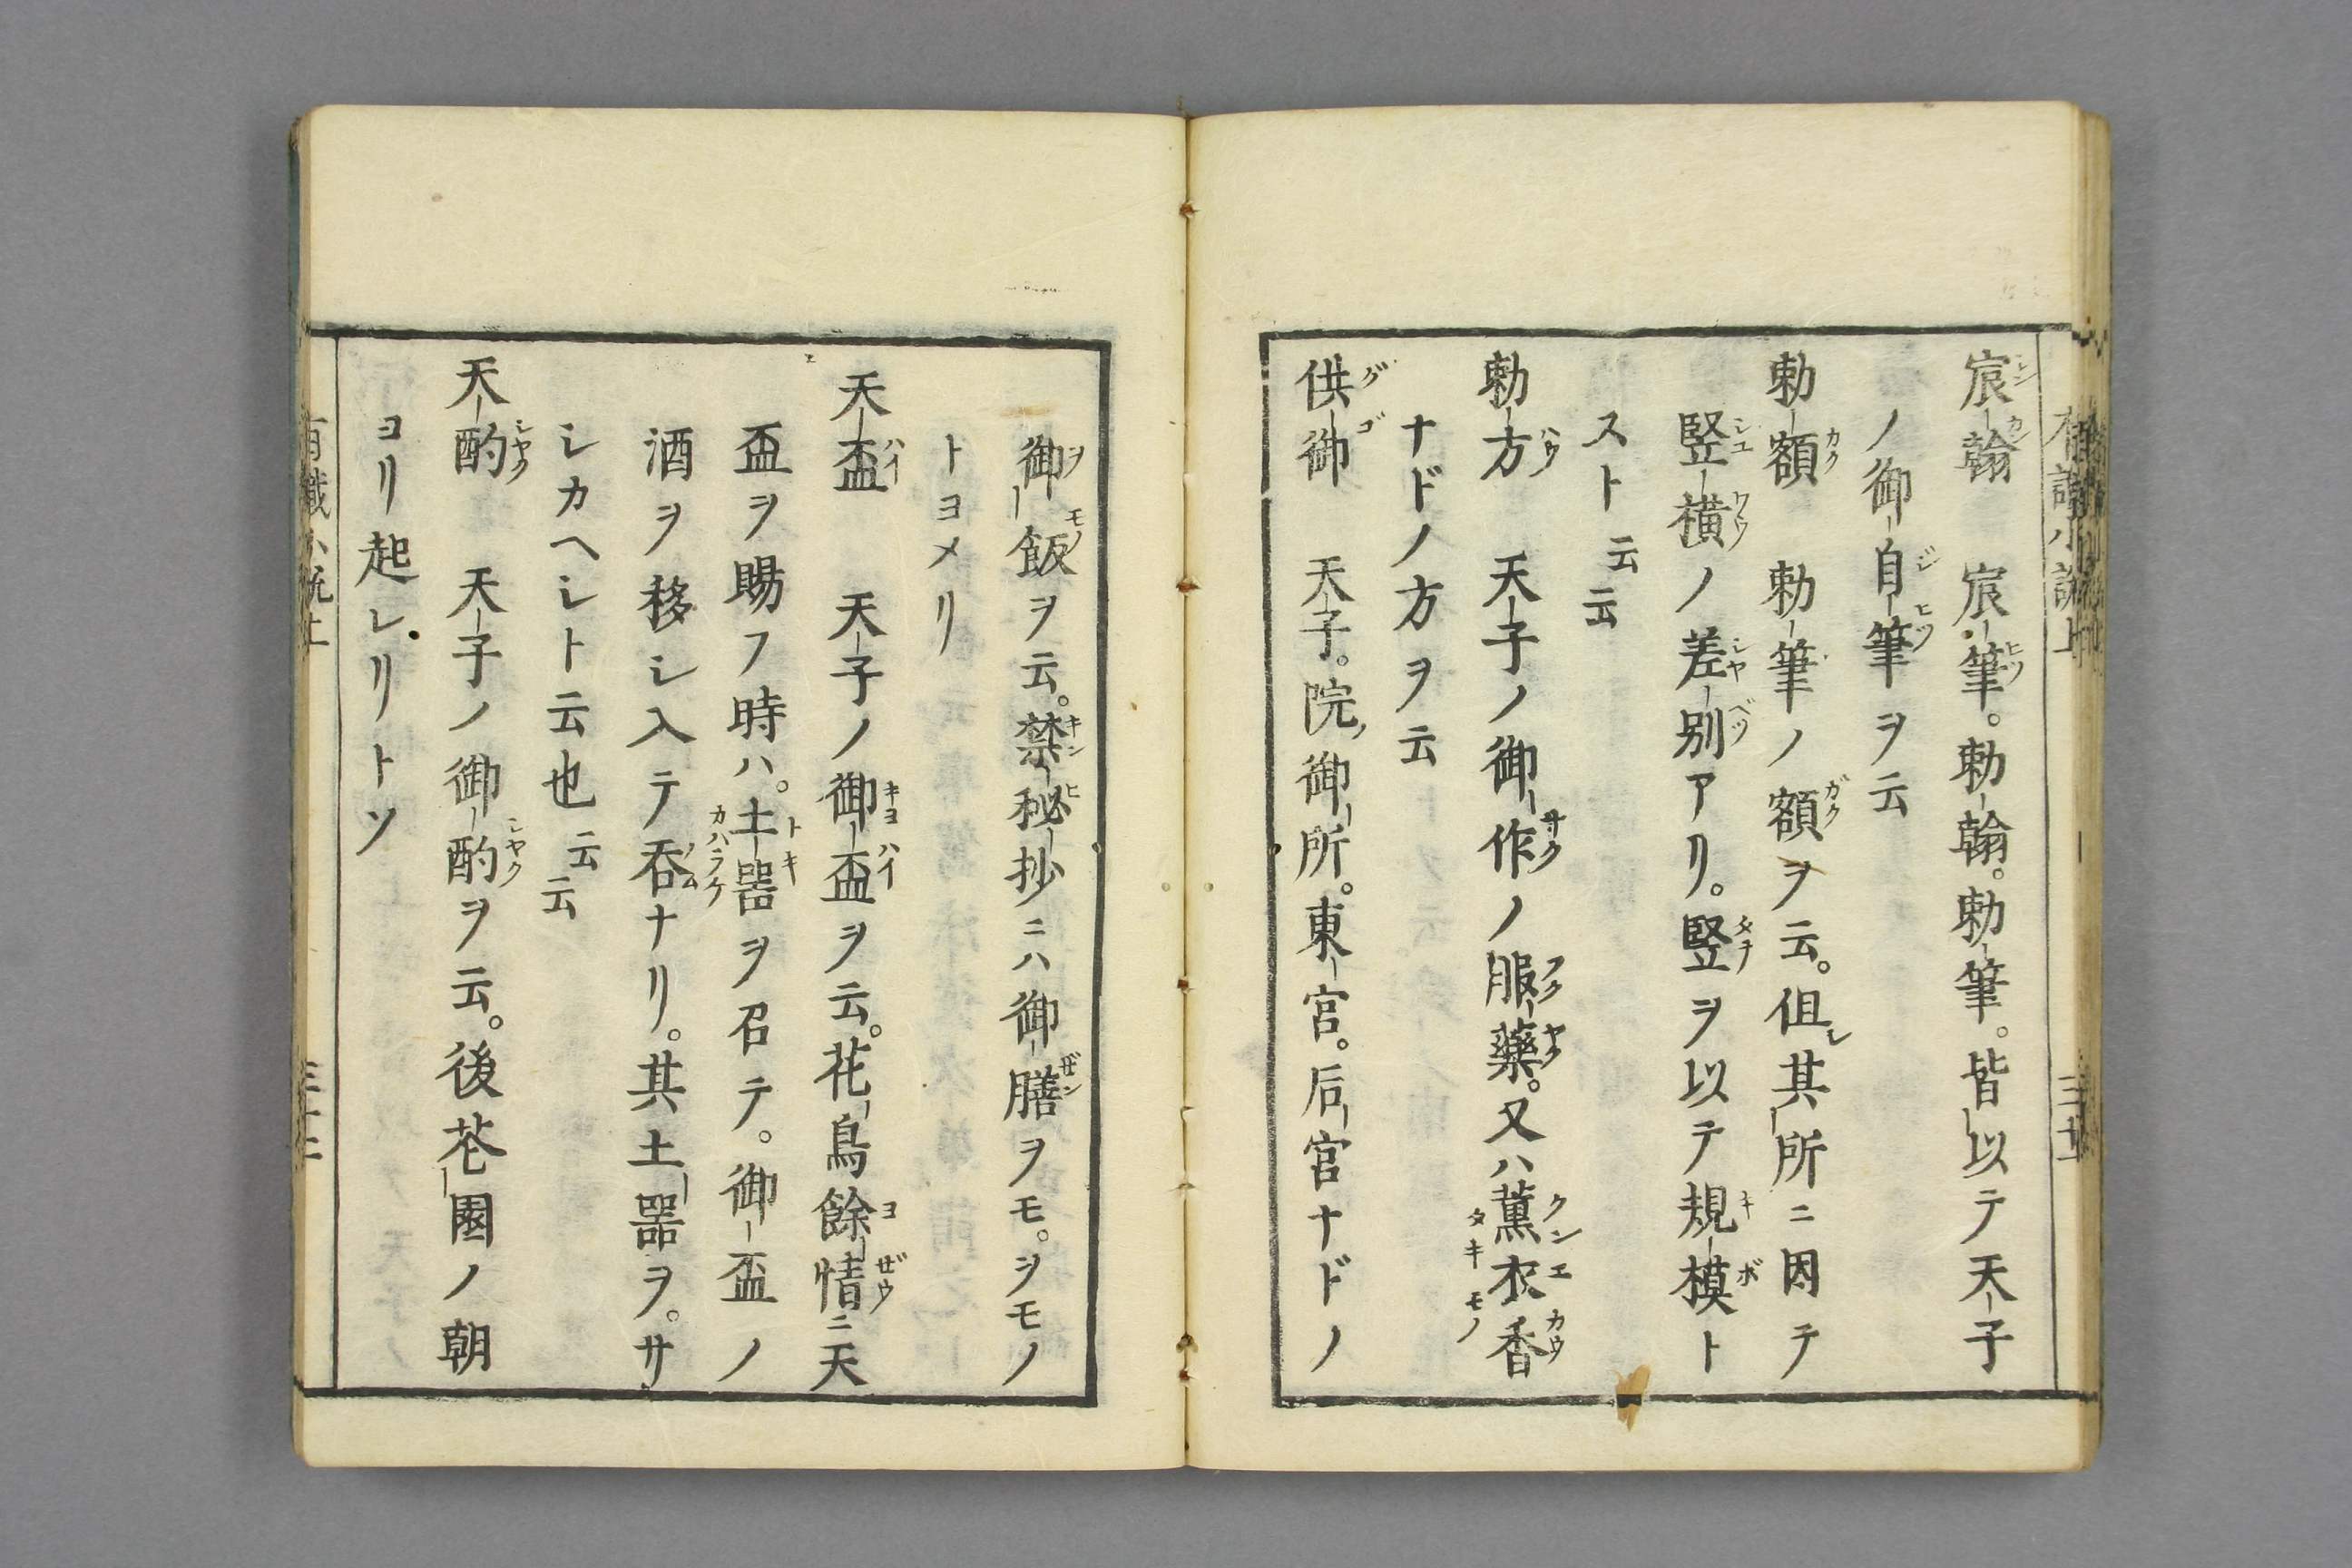 宸翰　宸筆。勅翰。勅筆。皆以テ天子
ノ御自筆ヲ云
勅額　勅筆ノ額ヲ云。但シ其所ニ因テ
竪横ノ差別アリ。竪ヲ以テ規模ト
スト云云
勅方　天子ノ御作ノ服藥。又ハ薫衣香
ナドノ方ヲ云
供御　天子。院ノ御所。東宮。后宮ナドノ
御飯ヲ云。禁秘抄ニハ御膳ヲモ。ヲモノ
トヨメリ
天盃　天子ノ御盃ヲ云。花鳥餘情ニ天
盃ヲ賜フ時ハ。土噐ヲ召テ。御盃ノ
酒ヲ移シ入テ呑ナリ。其土噐ヲ。サ
シカヘシト云也云云
天酌　天子ノ御酌ヲ云。後花園ノ朝
ヨリ起レリトソ
有職小説上